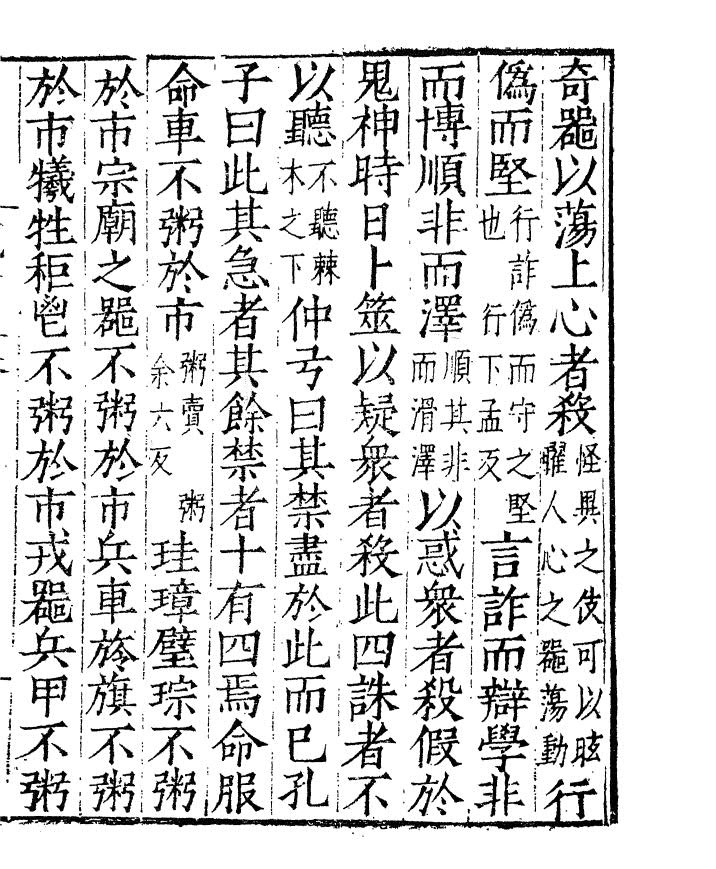 奇噐以蕩上心者殺怪異之伎可以眩曜人心之噐蕩動行
僞而堅行詐僞而守之堅也　行下孟反言詐而辯學非
而博順非而澤順其非而滑澤以惑衆者殺假於
鬼神時日卜筮以疑衆者殺此四誅者不
以聽不聽棘木之下仲弓曰其禁盡於此而已孔
子曰此其急者其餘禁者十有四焉命服
命車不粥於市粥賣　粥余六反珪璋璧琮不粥
於市宗廟之噐不粥於市兵車旍旗不粥
於市犧牲秬鬯不粥於市戎噐兵甲不粥